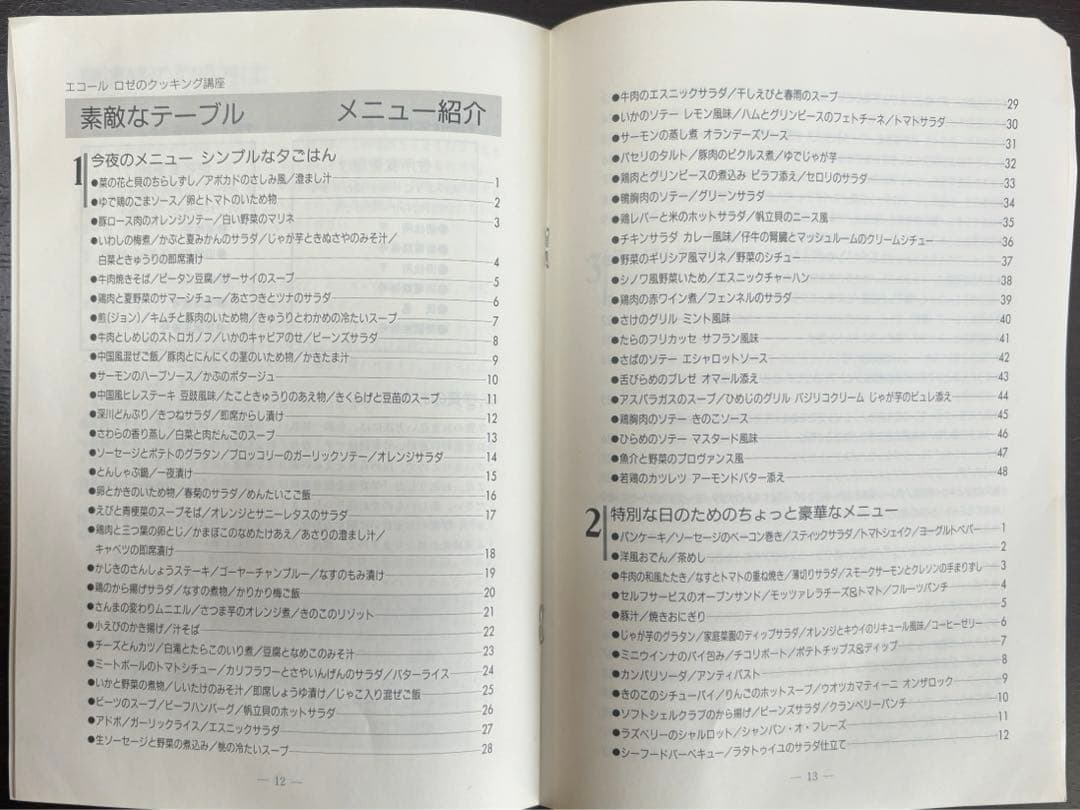 エコール ロゼのクッキング講座
素敵なテーブル メニュー紹介
1 今夜のメニュー シンプルな夕ごはん
●菜の花と貝のちらしずし／アボカドのさしみ風／澄まし汁 1
●ゆで鶏のごまソース／卵とトマトのいため物 2
●豚ロース肉のオレンジソテー／白い野菜のマリネ 3
●いわしの梅煮／かぶと夏みかんのサラダ／じゃが芋ときぬさやのみそ汁／
白菜ときゅうりの即席漬け 4
●牛肉焼きそば／ピータン豆腐／ザーサイのスープ 5
●鶏肉と夏野菜のサマーシチュー／あさつきとツナのサラダ 6
●煎(ジョン)／キムチと豚肉のいため物／きゅうりとわかめの冷たいスープ 7
●牛肉としめじのストロガノフ／いかのキャビアのせ／ビーンズサラダ 8
●中国風混ぜご飯／豚肉とにんにくの茎のいため物／かきたま汁 9
●サーモンのハーブソース／かぶのポタージュ 10
●中国風ヒレステーキ 豆豉風味／たこときゅうりのあえ物／きくらげと豆苗のスープ 11
●深川どんぶり／きつねサラダ／即席からし漬け 12
●さわらの香り蒸し／白菜と肉だんごのスープ 13
●ソーセージとポテトのグラタン／ブロッコリーのガーリックソテー／オレンジサラダ 14
●とんしゃぶ鍋／一夜漬け 15
●卵とかきのいため物／春菊のサラダ／めんたいこご飯 16
●えびと青梗菜のスープそば／オレンジとサニーレタスのサラダ 17
●鶏肉と三つ葉の卵とじ／かまぼこのなめたけあえ／あさりの澄まし汁／
キャベツの即席漬け 18
●かじきのさんしょうステーキ／ゴーヤーチャンプルー／なすのもみ漬け 19
●鶏のから揚げサラダ／なすの煮物／かりかり梅ご飯 20
●さんまの変わりムニエル／さつま芋のオレンジ煮／きのこのリゾット 21
●小えびのかき揚げ／汁そば 22
●チーズとんカツ／白滝とたらこのいり煮／豆腐となめこのみそ汁 23
●ミートボールのトマトシチュー／カリフラワーとさやいんげんのサラダ／バターライス 24
●いかと野菜の煮物／しいたけのみそ汁／即席しょうゆ漬け／じゃこ入り混ぜご飯 25
●ビーツのスープ／ビーフハンバーグ／帆立貝のホットサラダ 26
●アドボ／ガーリックライス／エスニックサラダ 27
●生ソーセージと野菜の煮込み／桃の冷たいスープ 28
— 12 —
●牛肉のエスニックサラダ／干しえびと春雨のスープ 29
●いかのソテー レモン風味／ハムとグリンピースのフェトチーネ／トマトサラダ 30
●サーモンの蒸し煮 オランデーズソース 31
●パセリのタルト／豚肉のピクルス煮／ゆでじゃが芋 32
●鶏肉とグリンピースの煮込み ピラフ添え／セロリのサラダ 33
●鴨胸肉のソテー／グリーンサラダ 34
●鶏レバーと米のホットサラダ／帆立貝のニース風 35
●チキンサラダ カレー風味／仔牛の腎臓とマッシュルームのクリームシチュー 36
●野菜のギリシア風マリネ／野菜のシチュー 37
●シノワ風野菜いため／エスニックチャーハン 38
●鶏肉の赤ワイン煮／フェンネルのサラダ 39
●さけのグリル ミント風味 40
●たらのフリカッセ サフラン風味 41
●さばのソテー エシャロットソース 42
●舌びらめのブレゼ オマール添え 43
●アスパラガスのスープ／ひめじのグリル バジリコクリーム じゃが芋のピュレ添え 44
●鶏胸肉のソテー きのこソース 45
●ひらめのソテー マスタード風味 46
●魚介と野菜のプロヴァンス風 47
●若鶏のカツレツ アーモンドバター添え 48
2 特別な日のためのちょっと豪華なメニュー
●パンケーキ／ソーセージのベーコン巻き／スティックサラダ／トマトシェイク／ヨーグルトペパー 1
●洋風おでん／茶めし 2
●牛肉の和風たたき／なすとトマトの重ね焼き／薄切りサラダ／スモークサーモンとクレソンの手まりずし 3
●セルフサービスのオープンサンド／モッツァレラチーズ&トマト／フルーツパンチ 4
●豚汁／焼きおにぎり 5
●じゃが芋のグラタン／家庭菜園のディップサラダ／オレンジとキウイのリキュール風味／コーヒーゼリー 6
●ミニウインナのパイ包み／チコリボート／ポテトチップス&ディップ 7
●カンパリソーダ／アンティパスト 8
●きのこのシチューパイ／りんごのホットスープ／ウオツカマティーニ オンザロック 9
●ソフトシェルクラブのから揚げ／ビーンズサラダ／クランベリーパンチ 10
●ラズベリーのシャルロット／シャンパン・オ・フレーズ 11
●シーフードバーベキュー／ラタトゥイユのサラダ仕立て 12
— 13 —